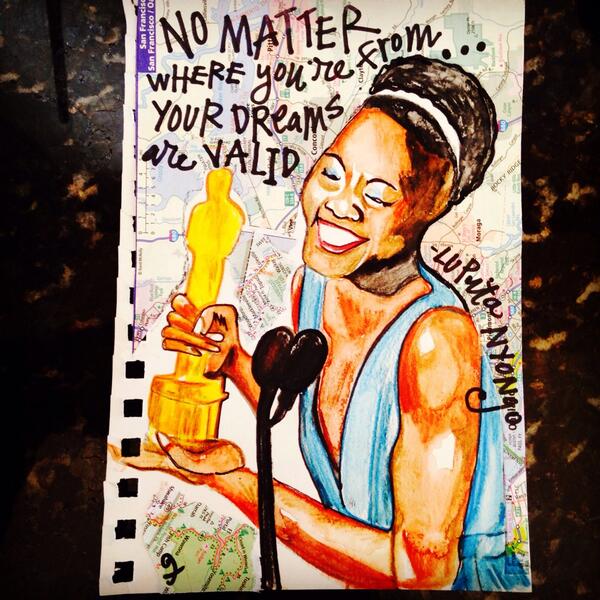 NO MATTER
WHERE You're From...
YOUR DReams
are VALID
LuPita NYONgo
San Francisco
San Francisco / Oa
Conco
Moraga
ROCKY RIDGE